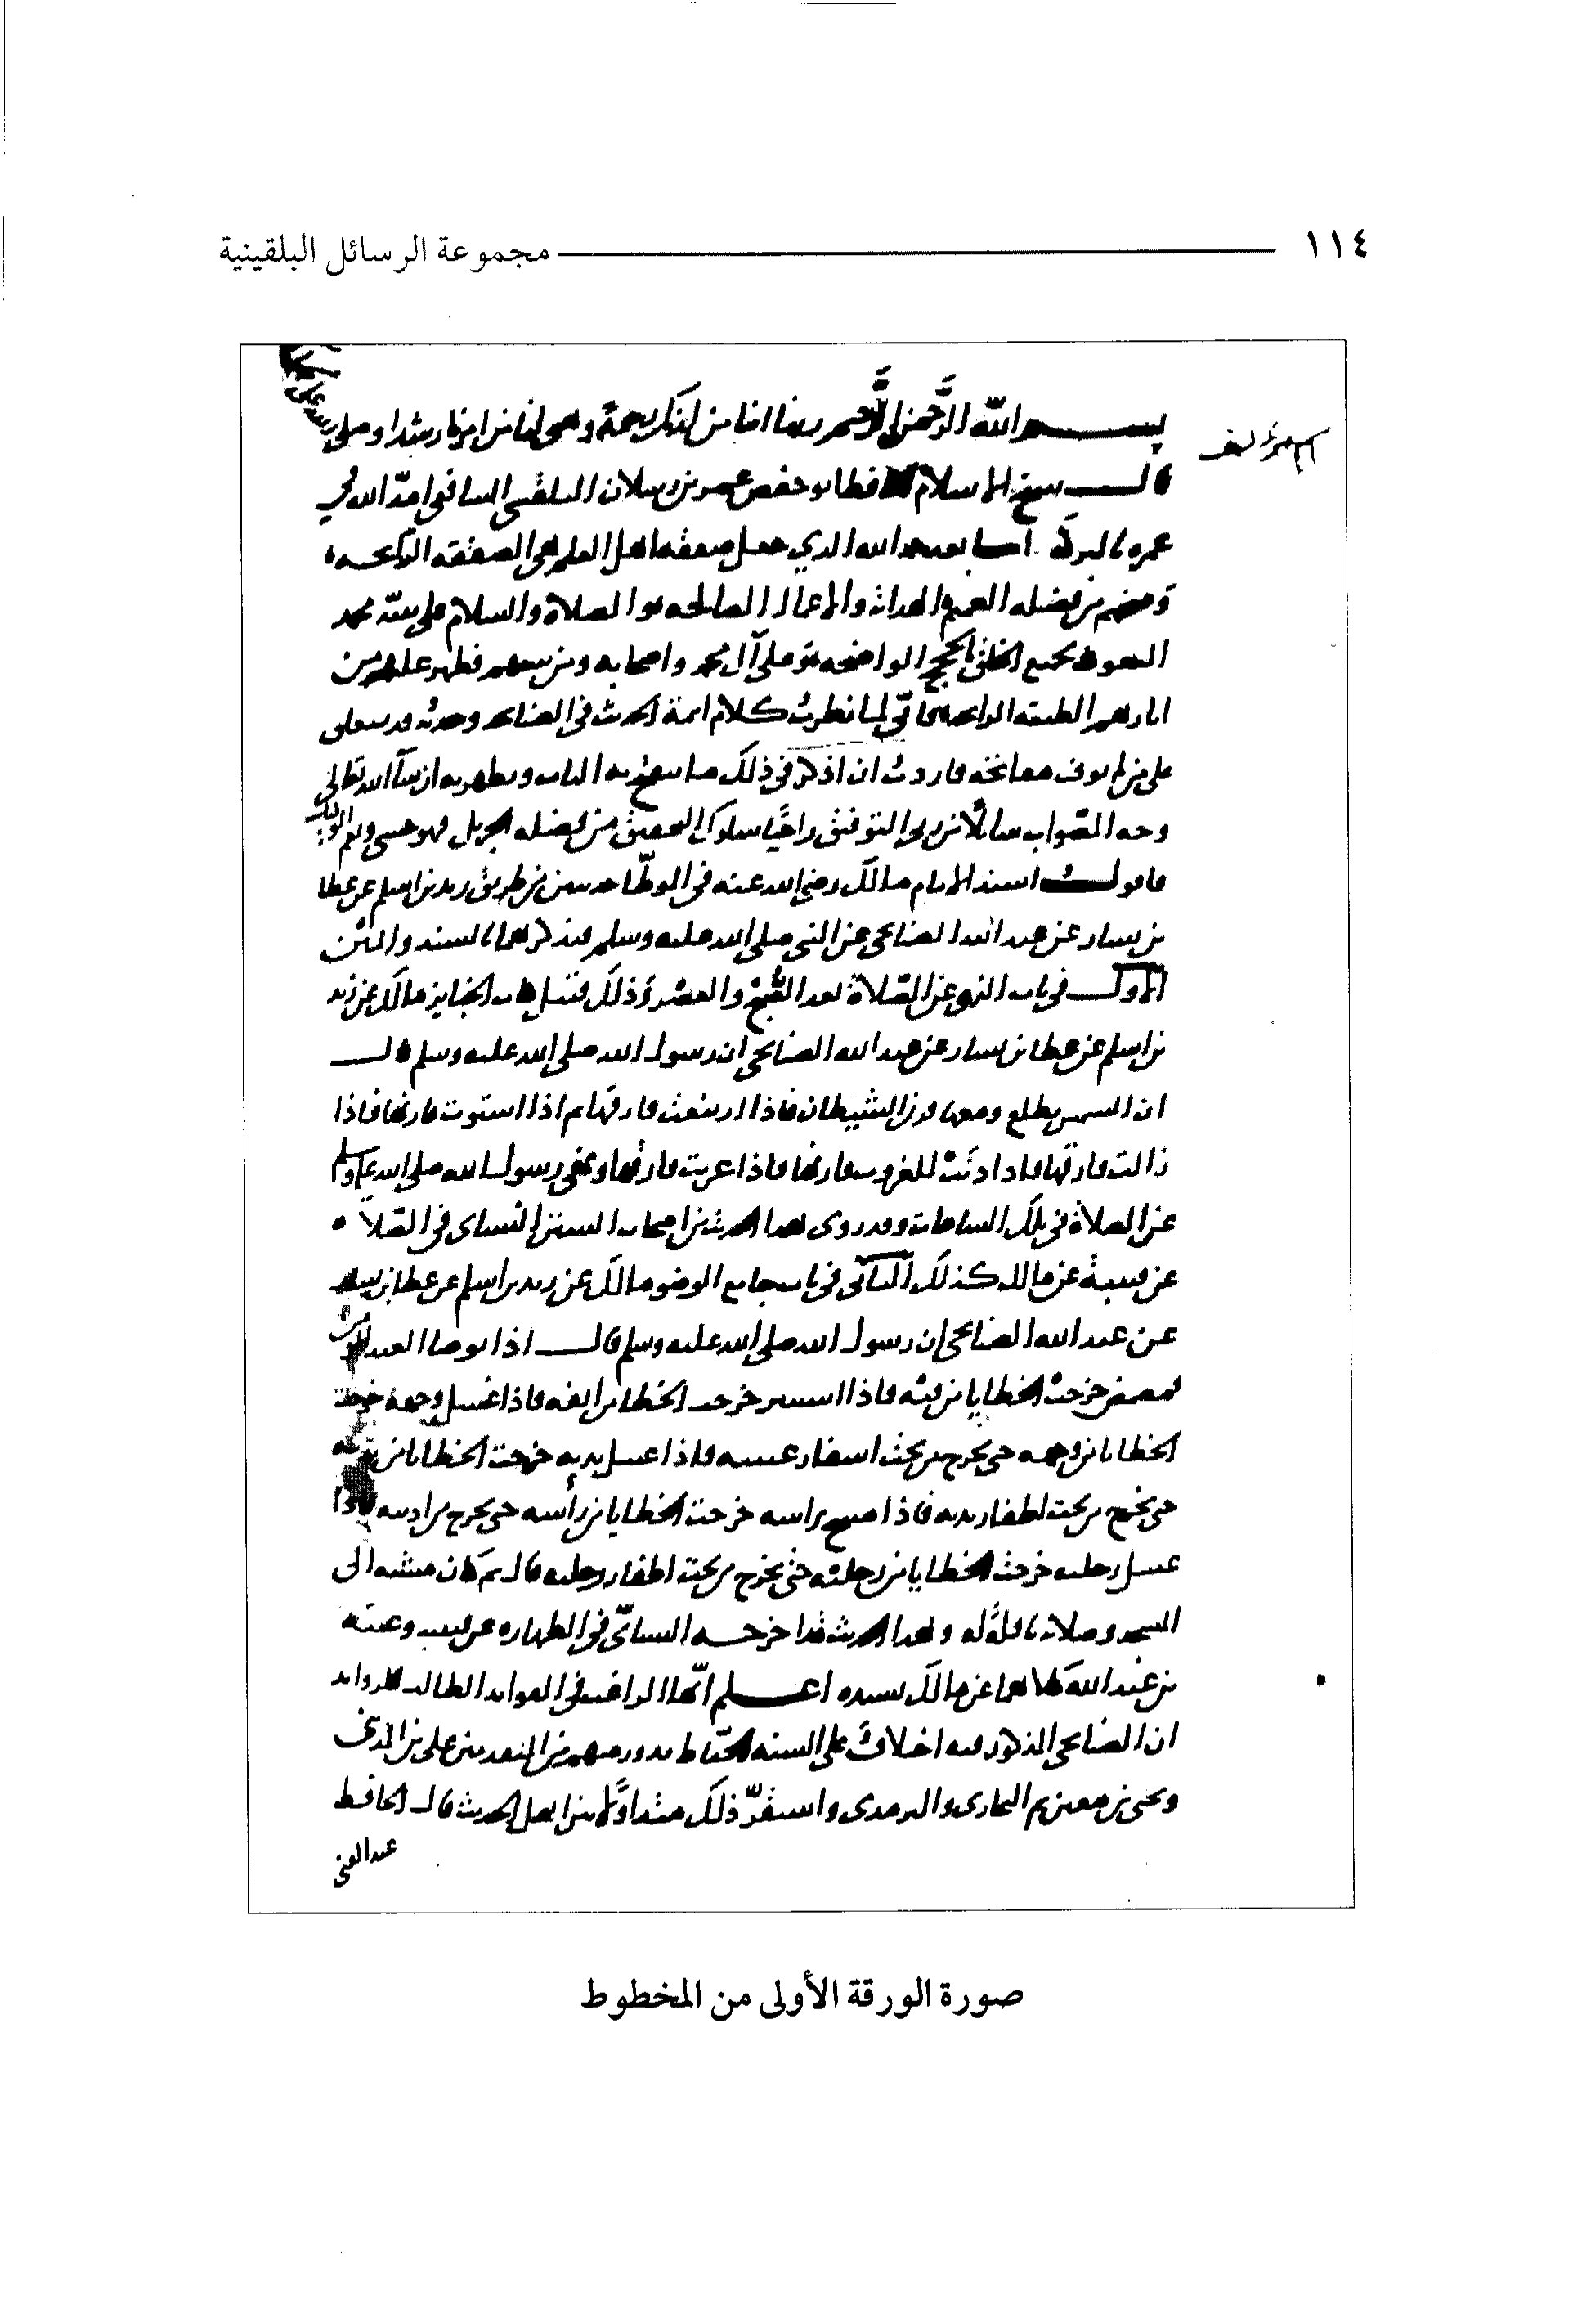 ١١٤ مجموعة الرسائل البلقينية
بسم الله الرَّحمن الرَّحيم ربنا اتنا من لدنك رحمة وهي لنا من امرنا رشدا وصلى
قال سيخ الاسلام الحافظ ابو حفص عمر بن رسلان البلقيني السافعي امدّ الله في
عمره بالبركة اما بعد حمد الله الذي جعل صفقة اهل العلم هي الصفقة الرابحة
من فضله العميم والاعمال الصالحة والصلاة والسلام على محمد
المبعوث بجميع الخلق بالحجج الواضحة وعلى آل محمد واصحابه ومن تبعهم فظهر عليهم من
لما نظرت كلام ايمة الحديث في الصنابحي وجدته قد
على من لم فاردت ان اذكر في ذلك ما به الباب ويظهر به ان شآ الله تعالى
وجه الصّواب سائلًا من التوفيق راجيًا سلوك التحقيق من فضله الجزيل فهو حسبي ونعم الوكيل
فاقول اسند الامام مالك رضي الله عنه في الموطّا حديثين من طريق زيد بن اسلم عن عطا
بن يسار عن عبد الله الصنابحي عن النبي صلى الله عليه وسلم فنذكرهما بالسند والمتن
الاول في باب النهي عن الصّلاة بعد الصُّبح والعصر وذلك قبل كتاب الجنايز مالك عن زيد
بن اسلم عن عطا بن يسار عن عبد الله الصنابحي ان رسول الله صلى الله عليه وسلم قال
ان الشمس تطلع ومعها قرن الشيطان فاذا ارتفعت فارقها ثم اذا استوت قارنها فاذا
زالت فارقها فاذا دنت للغروب قارنها فاذا غربت فارقها ونهى رسول الله صلى الله عليه وسلم
عن الصلاة في تلك الساعات وقد روى هذا الحديث من اصحاب السنن النساي في الصّلاة
عن قتيبة عن مالك كذلك الثاني في باب جامع الوضو مالك عن زيد بن اسلم عن عطا بن يسار
عن عبد الله الصنابحي ان رسول الله صلى الله عليه وسلم قال اذا توضا العبد المومن
فمضمض خرجت الخطايا من فيه فاذا استنثر خرجت الخطايا من انفه فاذا غسل وجهه خرجت
الخطايا من وجهه حتى تخرج من تحت اشفار عينيه فاذا غسل يديه خرجت الخطايا من يديه
حتى تخرج من تحت اظفار يديه فاذا مسح براسه خرجت الخطايا من رأسه حتى تخرج من اذنيه فاذا
غسل رجليه خرجت الخطايا من رجليه حتى تخرج من تحت اظفار رجليه قال ثم كان مشيه الى
المسجد وصلاته نافلةً له وهذا الحديث قد اخرجه النسائي في الطهارة عن قتيبة وعتبة
بن عبد الله كلاهما عن مالك بسنده اعلم ايّها الراغب في الفوايد الطالب للزوايد
ان الصنابحي المذكور فيه اختلاف على السنة الحفّاظ يدور بينهم من المتقدمين علي بن المديني
ويحيى بن معين ثم البخاري والترمذي واستقرّ ذلك متداولًا بين اهل الحديث قال الحافظ
عبد الغني
صورة الورقة الأولى من المخطوط